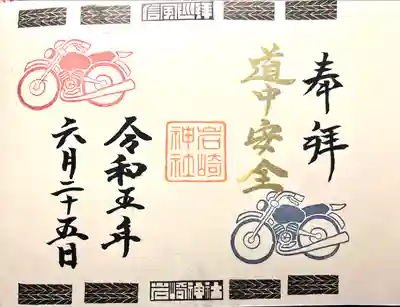 信軍巡拝
奉拝
道中安全
岩崎
神社
令和五年
六月二十五日
岩崎神社